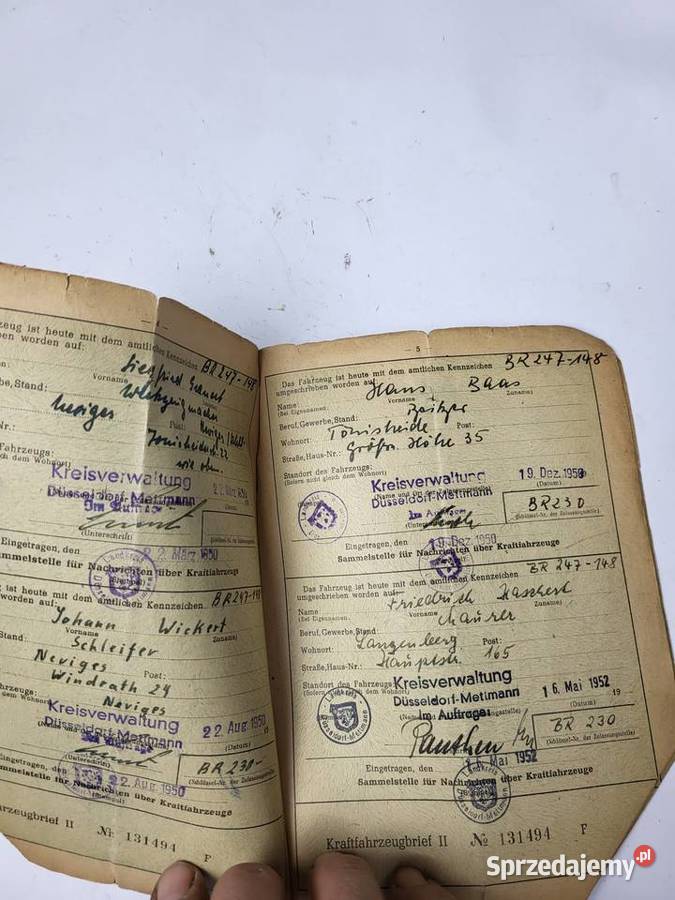 rzeug ist heute mit dem amtlichen Kennzeichen BR 247-148
ben worden auf:
Siegfried
Vorname Zuname)
e, Stand: Werkzeugmacher
Neviges Post: Neviges
Hs-Nr.: 22
Fahrzeugs: wie oben.
ch dem Wohnort)
Kreisverwaltung
Düsseldorf-Mettmann
Im Auftrage
22. März 1950
(Datum)
(Unterschrift)
Eingetragen, den 22. März 1950
Sammelstelle für Nachrichten über Kraftfahrzeuge
g ist heute mit dem amtlichen Kennzeichen BR 247-148
worden auf:
Johann Wickert
Vorname Zuname)
Stand: Schleifer
Neviges Post:
Windrath 24
hrzeugs: Neviges
dem Wohnort)
Kreisverwaltung
Düsseldorf-Mettmann
22 Aug. 1950
(Datum)
(Unterschrift)
BR 230
(Schlüssel-Nr. der Zulassungsstelle)
Eingetragen, den 22 Aug. 1950
Sammelstelle für Nachrichten über Kraftfahrzeuge
rzeugbrief II № 131494 F
— 5 —
Das Fahrzeug ist heute mit dem amtlichen Kennzeichen BR 247-148
umgeschrieben worden auf:
Hans Baas
Name: Vorname Zuname)
(Bei Eigennamen:
Beruf, Gewerbe, Stand:
Wohnort: Tönisheide Post:
Straße, Haus-Nr.: Höhe 35
Standort des Fahrzeugs:
(Sofern nicht gleich dem Wohnort)
Kreisverwaltung
Düsseldorf-Mettmann
Im Auftrage
19. Dez. 1950
(Datum)
(Unterschrift)
BR 230
(Schlüssel-Nr. der Zulassungsstelle)
Eingetragen, den 19. Dez. 1950
Sammelstelle für Nachrichten über Kraftfahrzeuge
Das Fahrzeug ist heute mit dem amtlichen Kennzeichen BR 247-148
umgeschrieben worden auf:
Friedrich
Name: Vorname Zuname)
(Bei Eigennamen: Maurer
Beruf, Gewerbe, Stand:
Wohnort: Langenberg Post:
Straße, Haus-Nr.: Hauptstr. 165
Standort des Fahrzeugs:
Kreisverwaltung
Düsseldorf-Mettmann
Im Auftrage:
16. Mai 1952
(Datum)
BR 230
(Schlüssel-Nr. der Zulassungsstelle)
Landkreis
Düsseldorf-Mettmann
Eingetragen, den Mai 1952
Sammelstelle für Nachrichten über Kraftfahrzeuge
Kraftfahrzeugbrief II № 131494 F
Sprzedajemy.pl